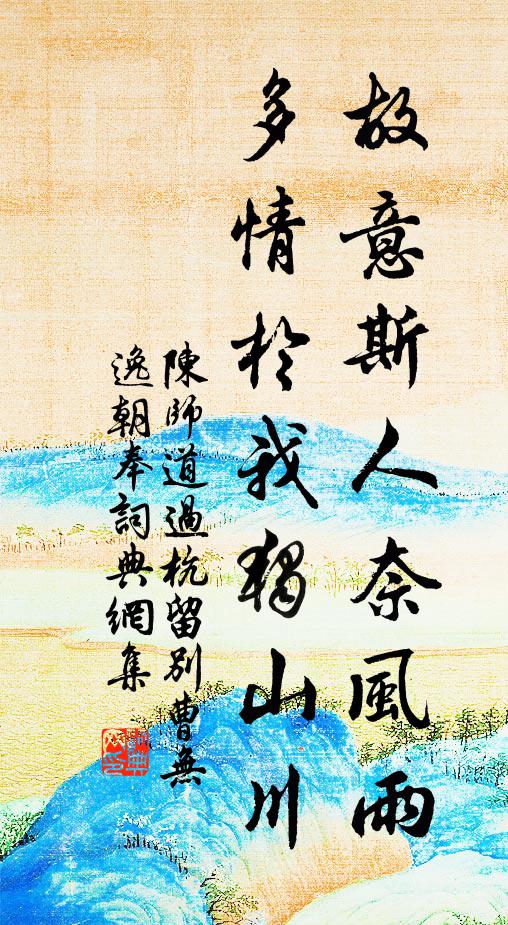 故意斯人奈風雨
多情於我獨山川
陳師道過杭留別曹無
逸朝奉詞典網集